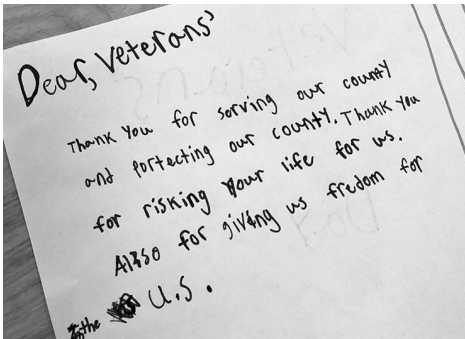 Dear, Veterans'
Thank you for serving our county
and portecting our county. Thank you
for risking your life for us.
Allso for giving us fredom for
the U.S.